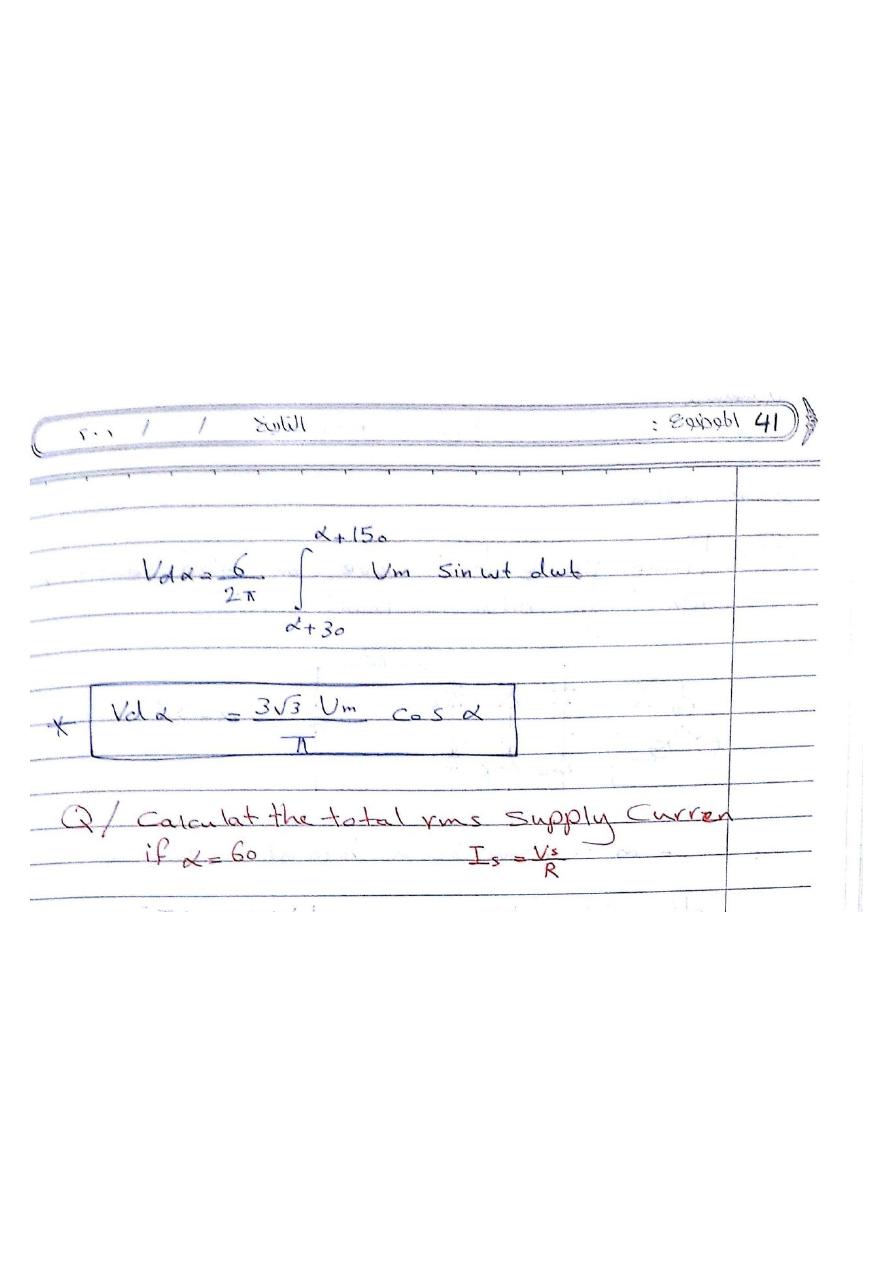 41 الموضوع : التاريخ / / ٢٠٠
Vdα = 6/2π ∫ α+30 α+150 Vm Sin wt dwt
* Vdα = 3√3 Vm / π cos α
Q/ Calculat the total rms Supply Curren
if α = 60 Is = Vs/R